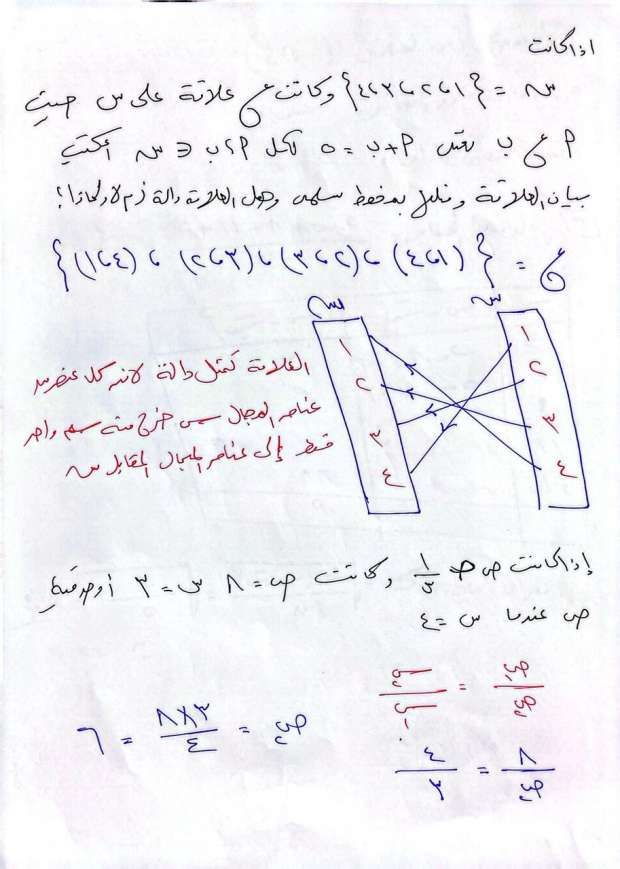 اذا كانت
س = {١، ٢، ٣، ٤} وكانت ع علاقة على س حيث
أ ع ب تعنى أ + ب = ٥ لكل أ، ب ∈ س أكتب
بيان العلاقة ومثلها بمخطط سهمى وهل العلاقة دالة أم لا ولماذا؟
ع = {(١، ٤)، (٢، ٣)، (٣، ٢)، (٤، ١)}
س س
١ ١
٢ ٢
٣ ٣
٤ ٤
العلاقة تمثل دالة لانه كل عنصر من
عناصر المجال س خرج منه سهم واحد
فقط إلى عناصر المجال المقابل س
إذا كانت ص ∝ ١/س وكانت ص = ٨ س = ٣ أوجد قيمة
ص عندما س = ٤
ص١/ص٢ = س٢/س١
٨/ص٢ = ٤/٣
ص٢ = ٣×٨/٤ = ٦